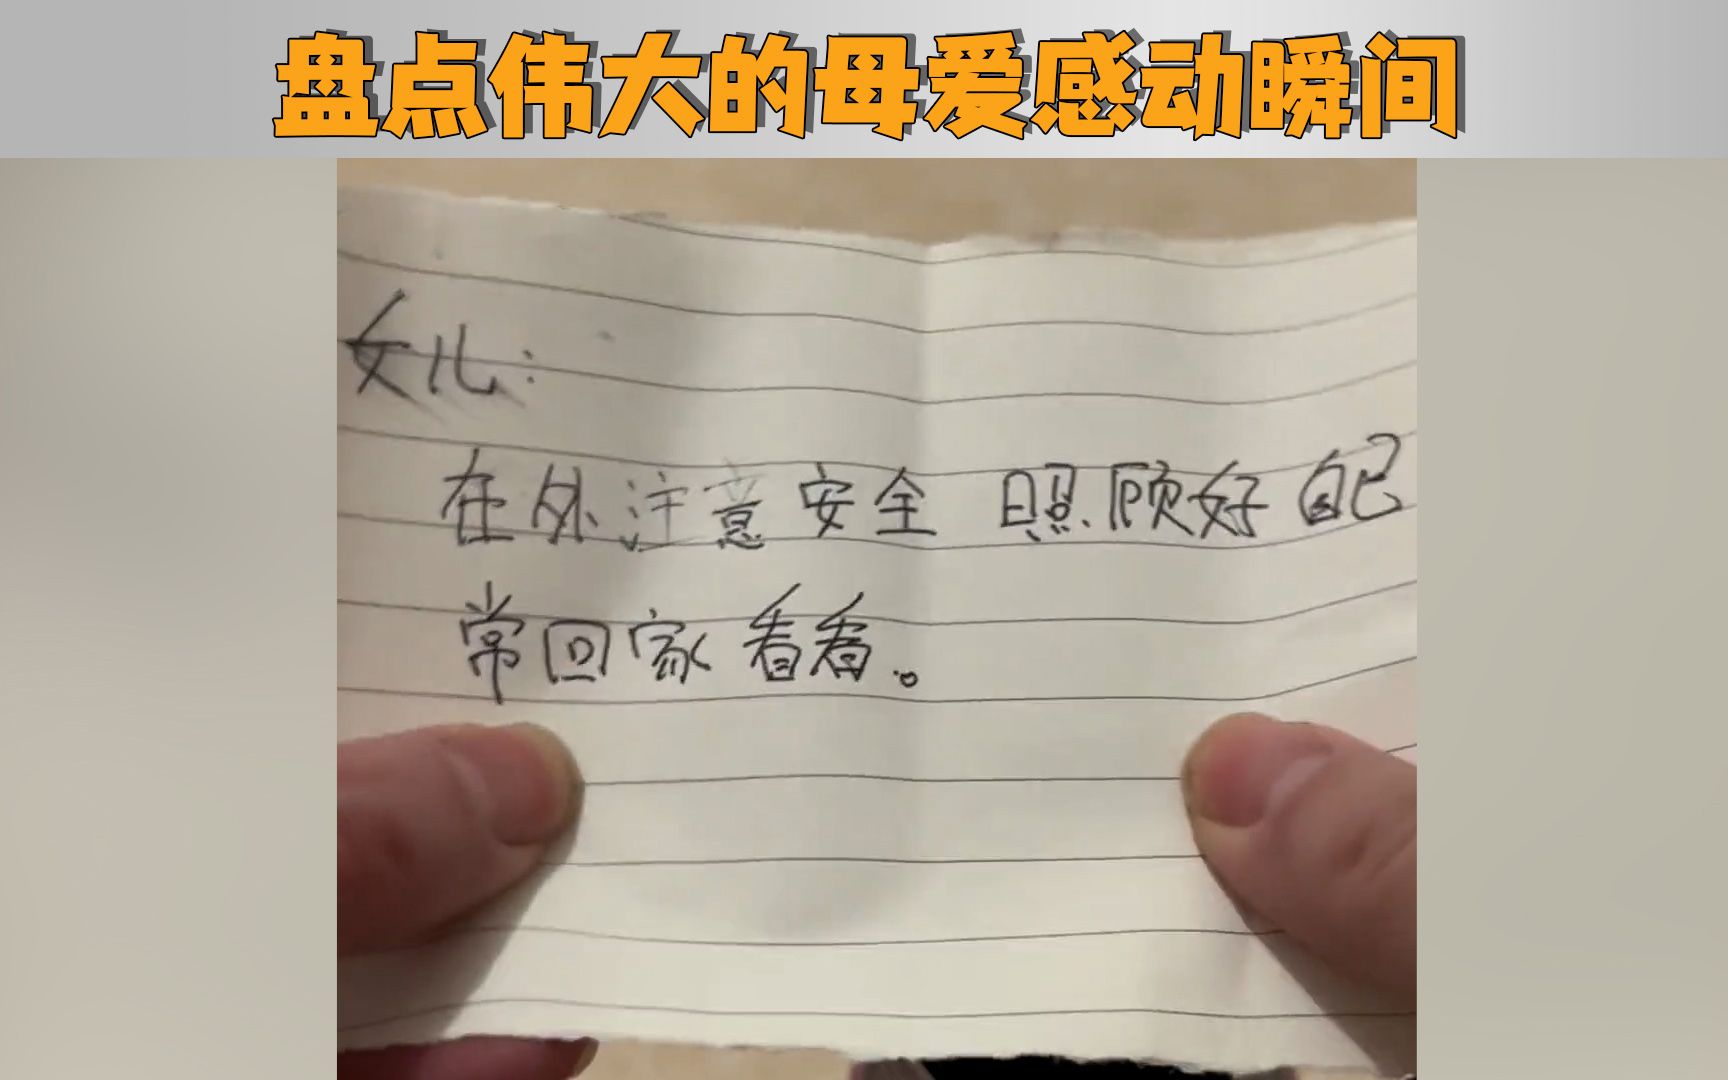 盘点伟大的母爱感动瞬间
女儿：
在外注意安全 照顾好自己
常回家看看。